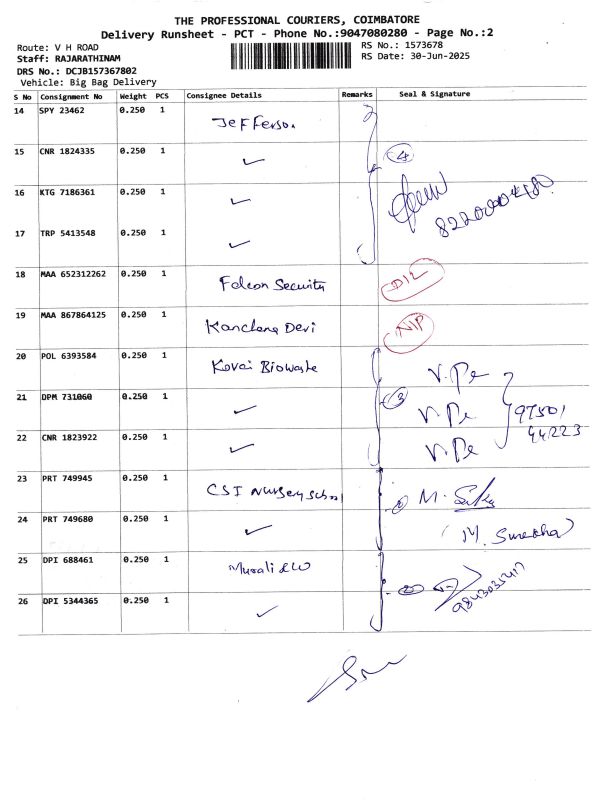 THE PROFESSIONAL COURIERS, COIMBATORE
Delivery Runsheet - PCT - Phone No.:9047080280 - Page No.:2
Route: V H ROAD
RS No.: 1573678
Staff: RAJARATHINAM
RS Date: 30-Jun-2025
DRS No.: DCJB157367802
Vehicle: Big Bag Delivery
S No Consignment No Weight PCS Consignee Details Remarks Seal & Signature
14 SPY 23462 0.250 1 Jefferson
15 CNR 1824335 0.250 1 ✓ 4
16 KTG 7186361 0.250 1 ✓
17 TRP 5413548 0.250 1 ✓
18 MAA 652312262 0.250 1 Falcon Security D/L
19 MAA 867864125 0.250 1 Kanchana Devi N/P
20 POL 6393584 0.250 1 Kovai Biowaste V. Pe
21 DPM 731060 0.250 1 ✓ 3 V. Pe 97501
22 CNR 1823922 0.250 1 ✓ V. Pe 44223
23 PRT 749945 0.250 1 CSI Nursery School 2 M.
24 PRT 749680 0.250 1 ✓ (M. Surekha)
25 DPI 688461 0.250 1 Murali
26 DPI 5344365 0.250 1 ✓ 2